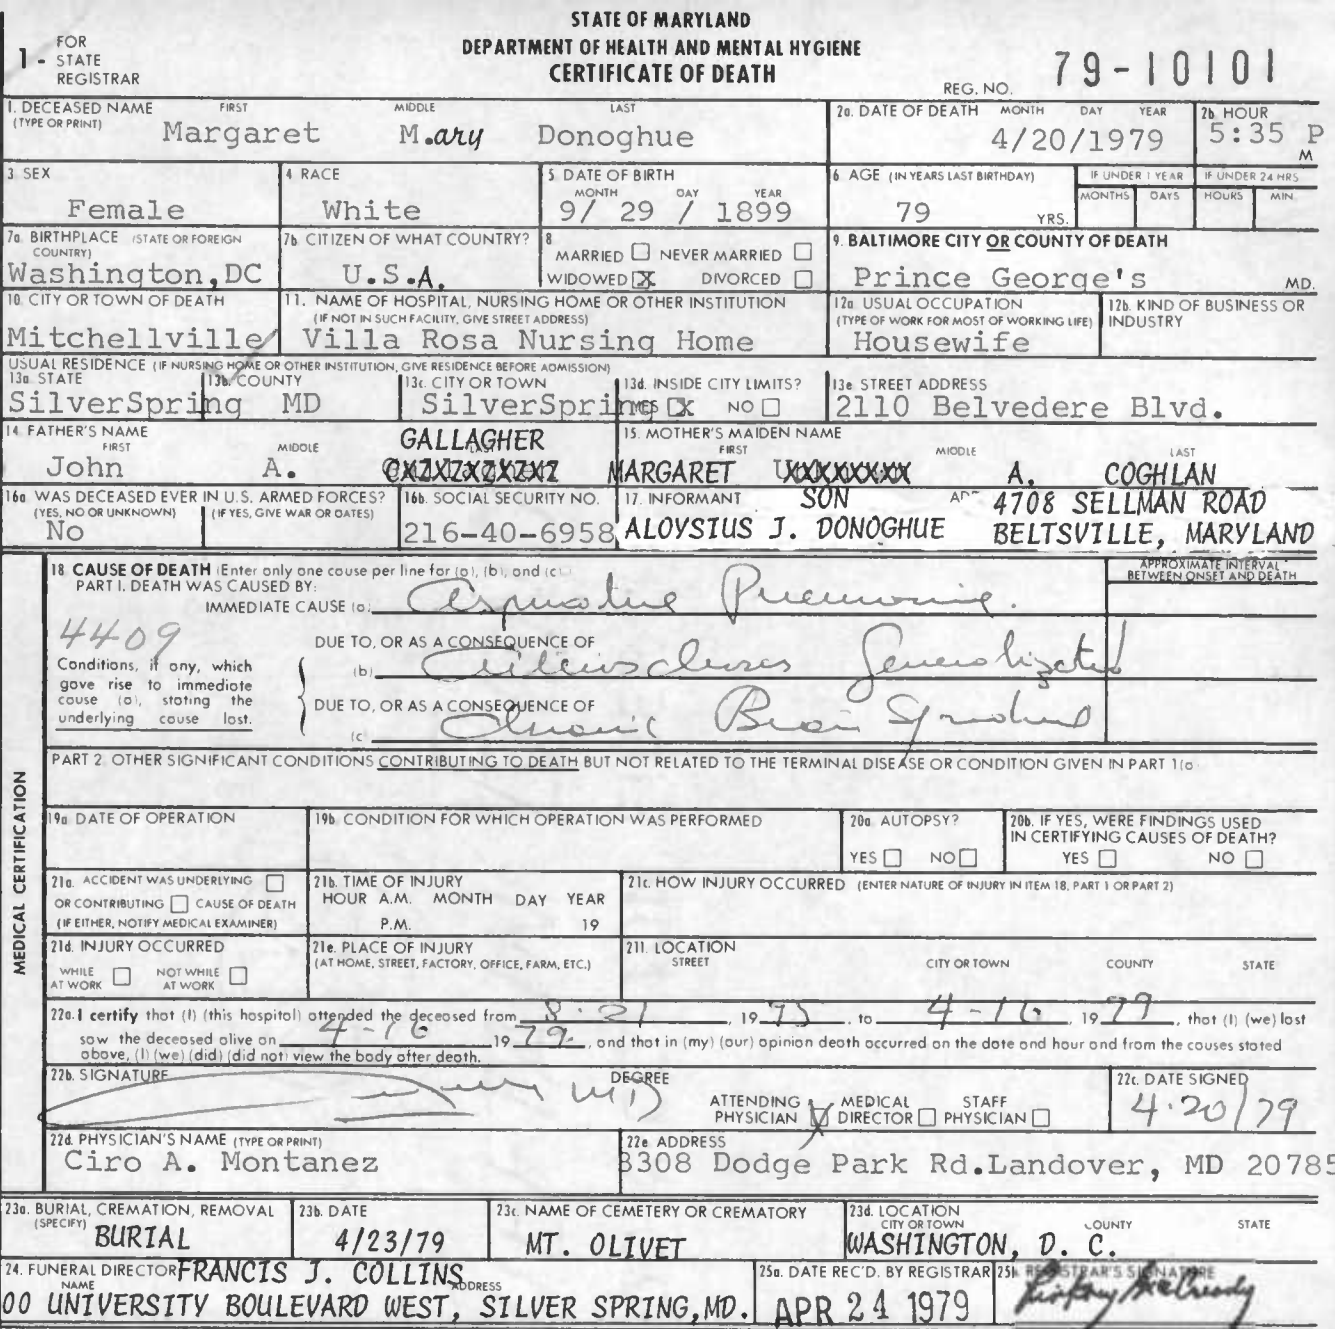 STATE OF MARYLAND
DEPARTMENT OF HEALTH AND MENTAL HYGIENE
CERTIFICATE OF DEATH
1 - FOR STATE REGISTRAR
REG. NO. 79-10101
1. DECEASED NAME (TYPE OR PRINT) FIRST MIDDLE LAST
Margaret M.ary Donoghue
2a. DATE OF DEATH MONTH DAY YEAR
4/20/1979
2b. HOUR
5:35 P M
3. SEX
Female
4. RACE
White
5. DATE OF BIRTH MONTH DAY YEAR
9/ 29 / 1899
6. AGE (IN YEARS LAST BIRTHDAY)
79 YRS.
IF UNDER 1 YEAR MONTHS DAYS
IF UNDER 24 HRS HOURS MIN.
7a. BIRTHPLACE (STATE OR FOREIGN COUNTRY)
Washington,DC
7b. CITIZEN OF WHAT COUNTRY?
U.S.A.
8. MARRIED NEVER MARRIED
WIDOWED X DIVORCED
9. BALTIMORE CITY OR COUNTY OF DEATH
Prince George's MD.
10. CITY OR TOWN OF DEATH
Mitchellville
11. NAME OF HOSPITAL, NURSING HOME OR OTHER INSTITUTION
(IF NOT IN SUCH FACILITY, GIVE STREET ADDRESS)
Villa Rosa Nursing Home
12a. USUAL OCCUPATION
(TYPE OF WORK FOR MOST OF WORKING LIFE)
Housewife
12b. KIND OF BUSINESS OR INDUSTRY
USUAL RESIDENCE (IF NURSING HOME OR OTHER INSTITUTION, GIVE RESIDENCE BEFORE ADMISSION)
13a. STATE 13b. COUNTY
SilverSpring MD
13c. CITY OR TOWN
SilverSpring
13d. INSIDE CITY LIMITS?
YES X NO
13e. STREET ADDRESS
2110 Belvedere Blvd.
14. FATHER'S NAME FIRST MIDDLE LAST
John A. GALLAGHER
15. MOTHER'S MAIDEN NAME FIRST MIDDLE LAST
MARGARET A. COGHLAN
16a. WAS DECEASED EVER IN U.S. ARMED FORCES?
(YES, NO OR UNKNOWN) (IF YES, GIVE WAR OR DATES)
No
16b. SOCIAL SECURITY NO.
216-40-6958
17. INFORMANT SON
ALOYSIUS J. DONOGHUE
4708 SELLMAN ROAD
BELTSVILLE, MARYLAND
MEDICAL CERTIFICATION
18. CAUSE OF DEATH (Enter only one cause per line for (a), (b), and (c).)
PART I. DEATH WAS CAUSED BY:
APPROXIMATE INTERVAL BETWEEN ONSET AND DEATH
IMMEDIATE CAUSE (a) Aspirative Pneumonia.
4409
Conditions, if any, which gave rise to immediate cause (a), stating the underlying cause last.
DUE TO, OR AS A CONSEQUENCE OF
(b) Generalizated
DUE TO, OR AS A CONSEQUENCE OF
(c) Chronic Brain Syndrome
PART 2. OTHER SIGNIFICANT CONDITIONS CONTRIBUTING TO DEATH BUT NOT RELATED TO THE TERMINAL DISEASE OR CONDITION GIVEN IN PART 1(a
19a. DATE OF OPERATION
19b. CONDITION FOR WHICH OPERATION WAS PERFORMED
20a. AUTOPSY?
YES NO
20b. IF YES, WERE FINDINGS USED IN CERTIFYING CAUSES OF DEATH?
YES NO
21a. ACCIDENT WAS UNDERLYING
OR CONTRIBUTING CAUSE OF DEATH
(IF EITHER, NOTIFY MEDICAL EXAMINER)
21b. TIME OF INJURY
HOUR A.M. MONTH DAY YEAR
P.M. 19
21c. HOW INJURY OCCURRED (ENTER NATURE OF INJURY IN ITEM 18, PART 1 OR PART 2)
21d. INJURY OCCURRED
WHILE AT WORK NOT WHILE AT WORK
21e. PLACE OF INJURY
(AT HOME, STREET, FACTORY, OFFICE, FARM, ETC.)
21f. LOCATION
STREET CITY OR TOWN COUNTY STATE
22a. I certify that (I) (this hospital) attended the deceased from 8-21, 1975, to 4-16, 1979, that (I) (we) last
saw the deceased alive on 4-16 1979, and that in (my) (our) opinion death occurred on the date and hour and from the causes stated
above, (I) (we) (did) (did not) view the body after death.
22b. SIGNATURE DEGREE
MD
ATTENDING PHYSICIAN MEDICAL DIRECTOR STAFF PHYSICIAN
22c. DATE SIGNED
4-20/79
22d. PHYSICIAN'S NAME (TYPE OR PRINT)
Ciro A. Montanez
22e. ADDRESS
3308 Dodge Park Rd.Landover, MD 20785
23a. BURIAL, CREMATION, REMOVAL (SPECIFY)
BURIAL
23b. DATE
4/23/79
23c. NAME OF CEMETERY OR CREMATORY
MT. OLIVET
23d. LOCATION
CITY OR TOWN COUNTY STATE
WASHINGTON, D. C.
24. FUNERAL DIRECTOR FRANCIS J. COLLINS
NAME ADDRESS
00 UNIVERSITY BOULEVARD WEST, SILVER SPRING,MD.
25a. DATE REC'D. BY REGISTRAR
APR 24 1979
25b. REGISTRAR'S SIGNATURE